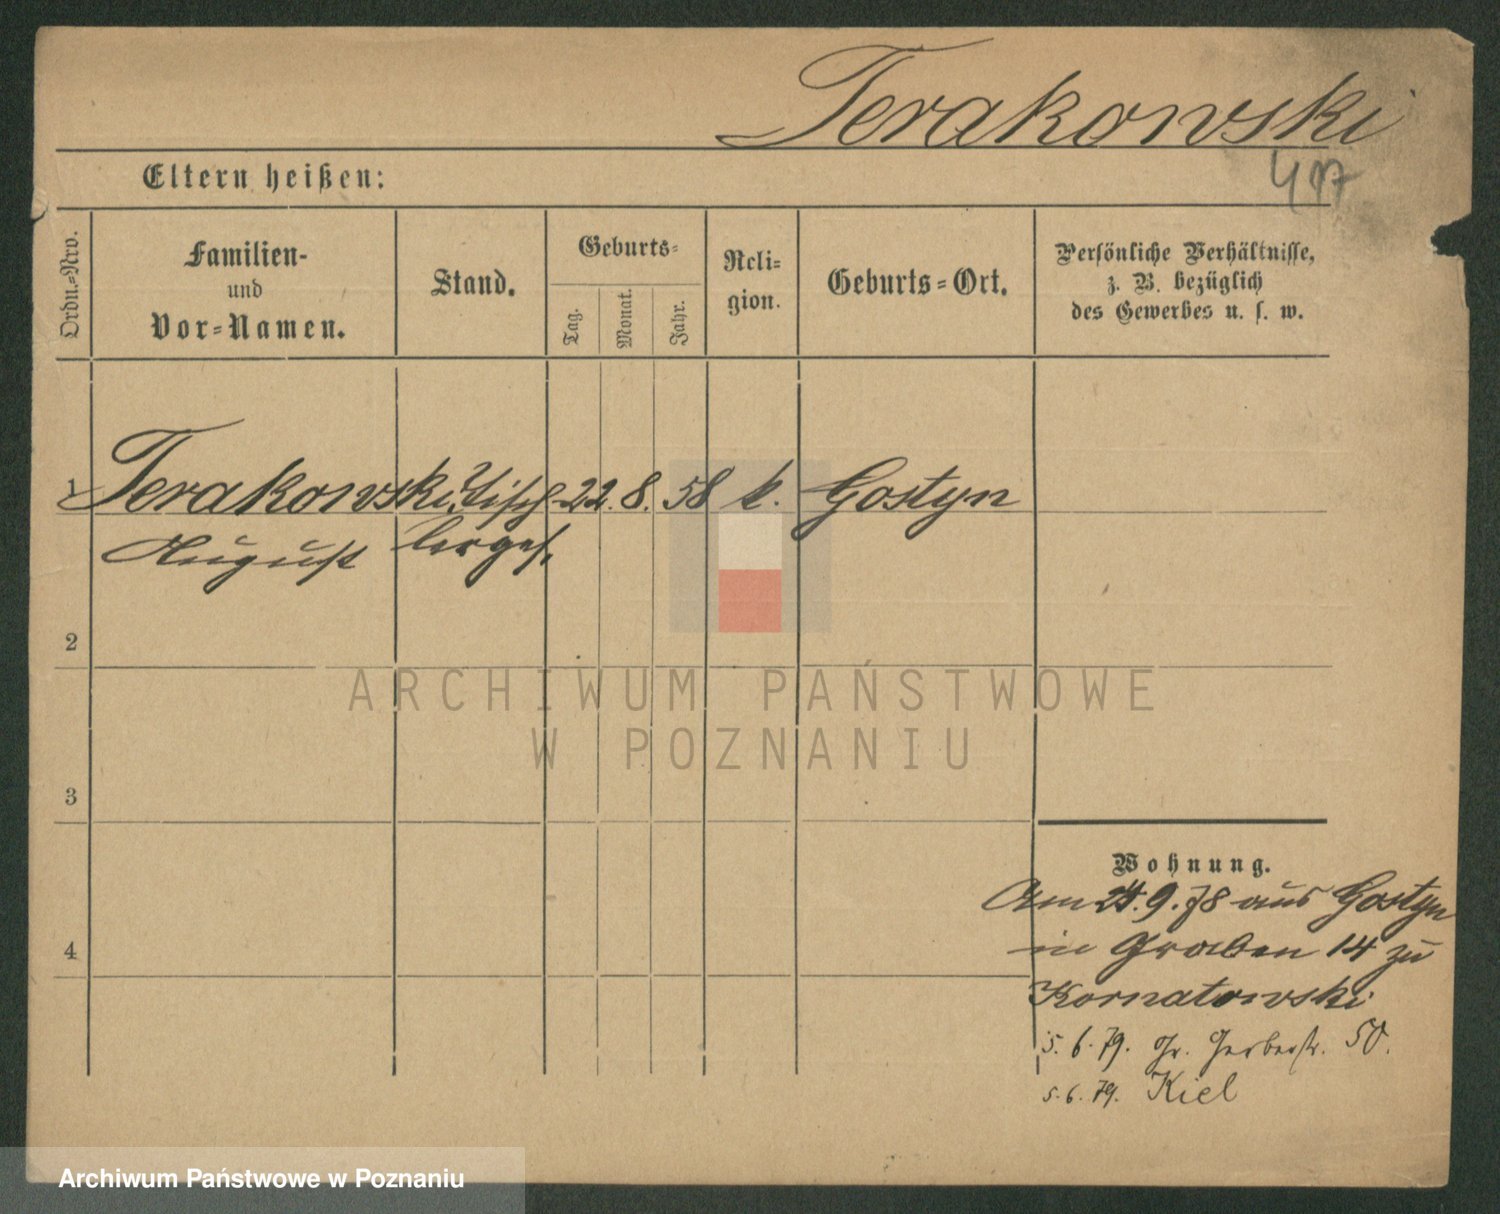 Terakowski
417
Eltern heißen:
Ordn.=Nro.
Familien-
und
Vor=Namen.
Stand.
Geburts=
Tag.
Monat.
Jahr.
Reli=
gion.
Geburts=Ort.
Persönliche Verhältnisse,
z. B. bezüglich
des Gewerbes u. s. w.
1 Terakowski Tisch 22. 8. 58 k. Gostyn
August lerges.
2
3
4
ARCHIWUM PAŃSTWOWE
W POZNANIU
Wohnung.
Am 24.9.78 aus Gostyn
in Graben 14 zu
Kornatowski
5.6.79. Gr. Gerberstr. 50.
5.6.79. Kiel
Archiwum Państwowe w Poznaniu